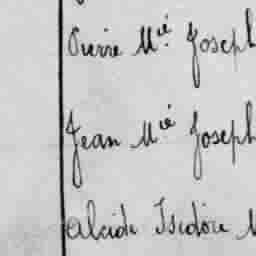 Pierre Mié Joseph
Jean Mié Joseph
Alcide Isidore